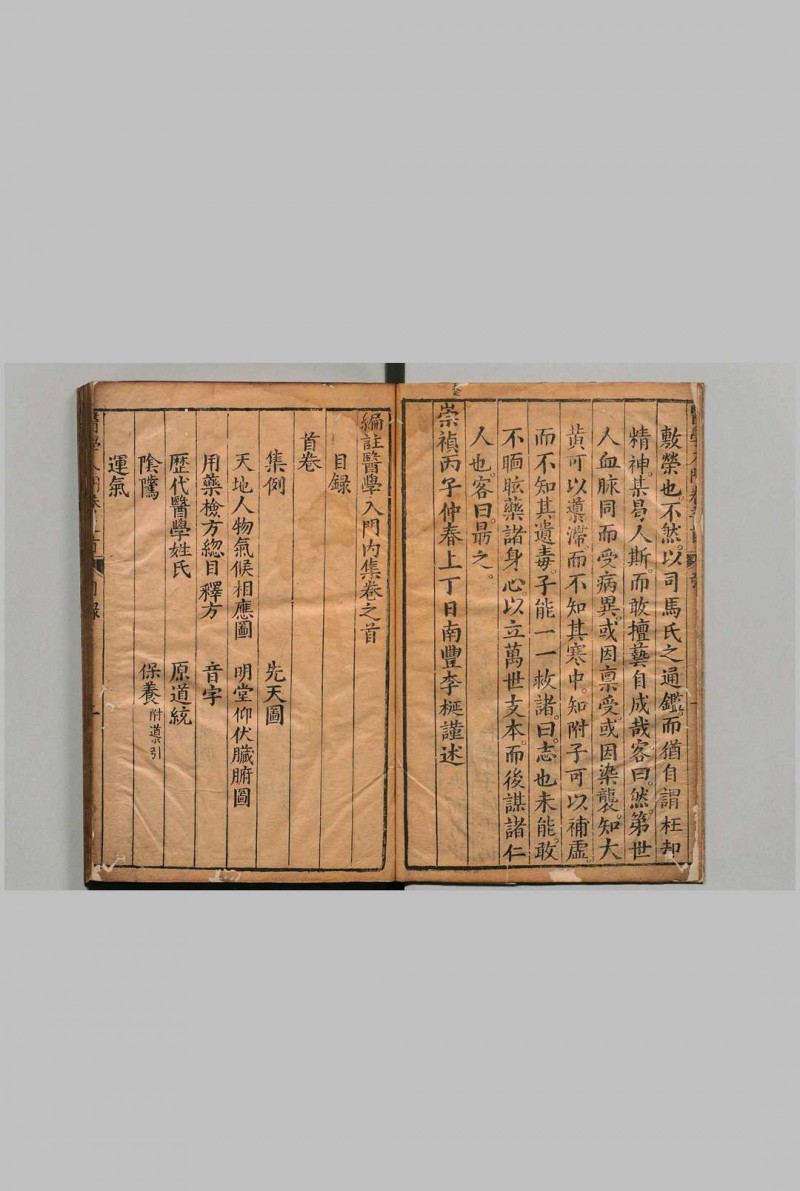 敷榮也不然以司馬氏之通鑑而猶自謂枉却
精神某曷人斯而敢擅藝自成哉客曰然第世
人血脉同而受病異或因禀受或因染襲知大
黄可以導滯而不知其寒中知附子可以補虛
而不知其遺毒子能一一救諸曰志也未能敢
不瞑眩藥諸身心以立萬世支本而後謀諸仁
人也客曰勗之
崇禎丙子仲春上丁日南豐李梴謹述
編註醫學入門内集卷之首
目録
首卷
集例 先天圖
天地人物氣候相應圖 明堂仰伏臟腑圖
用藥檢方緫目釋方 音字
歷代醫學姓氏 原道統
陰騭 保養附導引
運氣